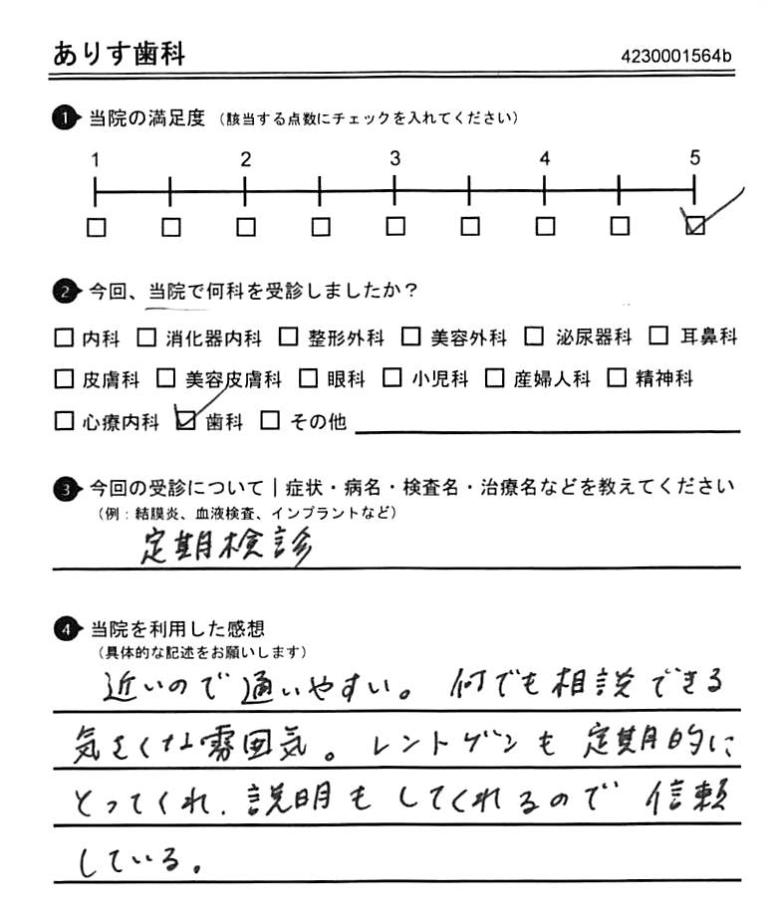 ありす歯科 4230001564b
1 当院の満足度 (該当する点数にチェックを入れてください)
1 2 3 4 5
2 今回、当院で何科を受診しましたか?
内科 消化器内科 整形外科 美容外科 泌尿器科 耳鼻科
皮膚科 美容皮膚科 眼科 小児科 産婦人科 精神科
心療内科 歯科 その他
3 今回の受診について|症状・病名・検査名・治療名などを教えてください
(例:結膜炎、血液検査、インプラントなど)
定期検診
4 当院を利用した感想
(具体的な記述をお願いします)
近いので通いやすい。何でも相談できる
気さくな雰囲気。レントゲンも定期的に
とってくれ、説明もしてくれるので信頼
している。